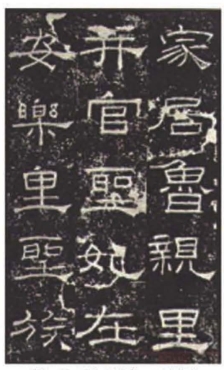 家居魯親里
并官聖妃在
安樂里聖族